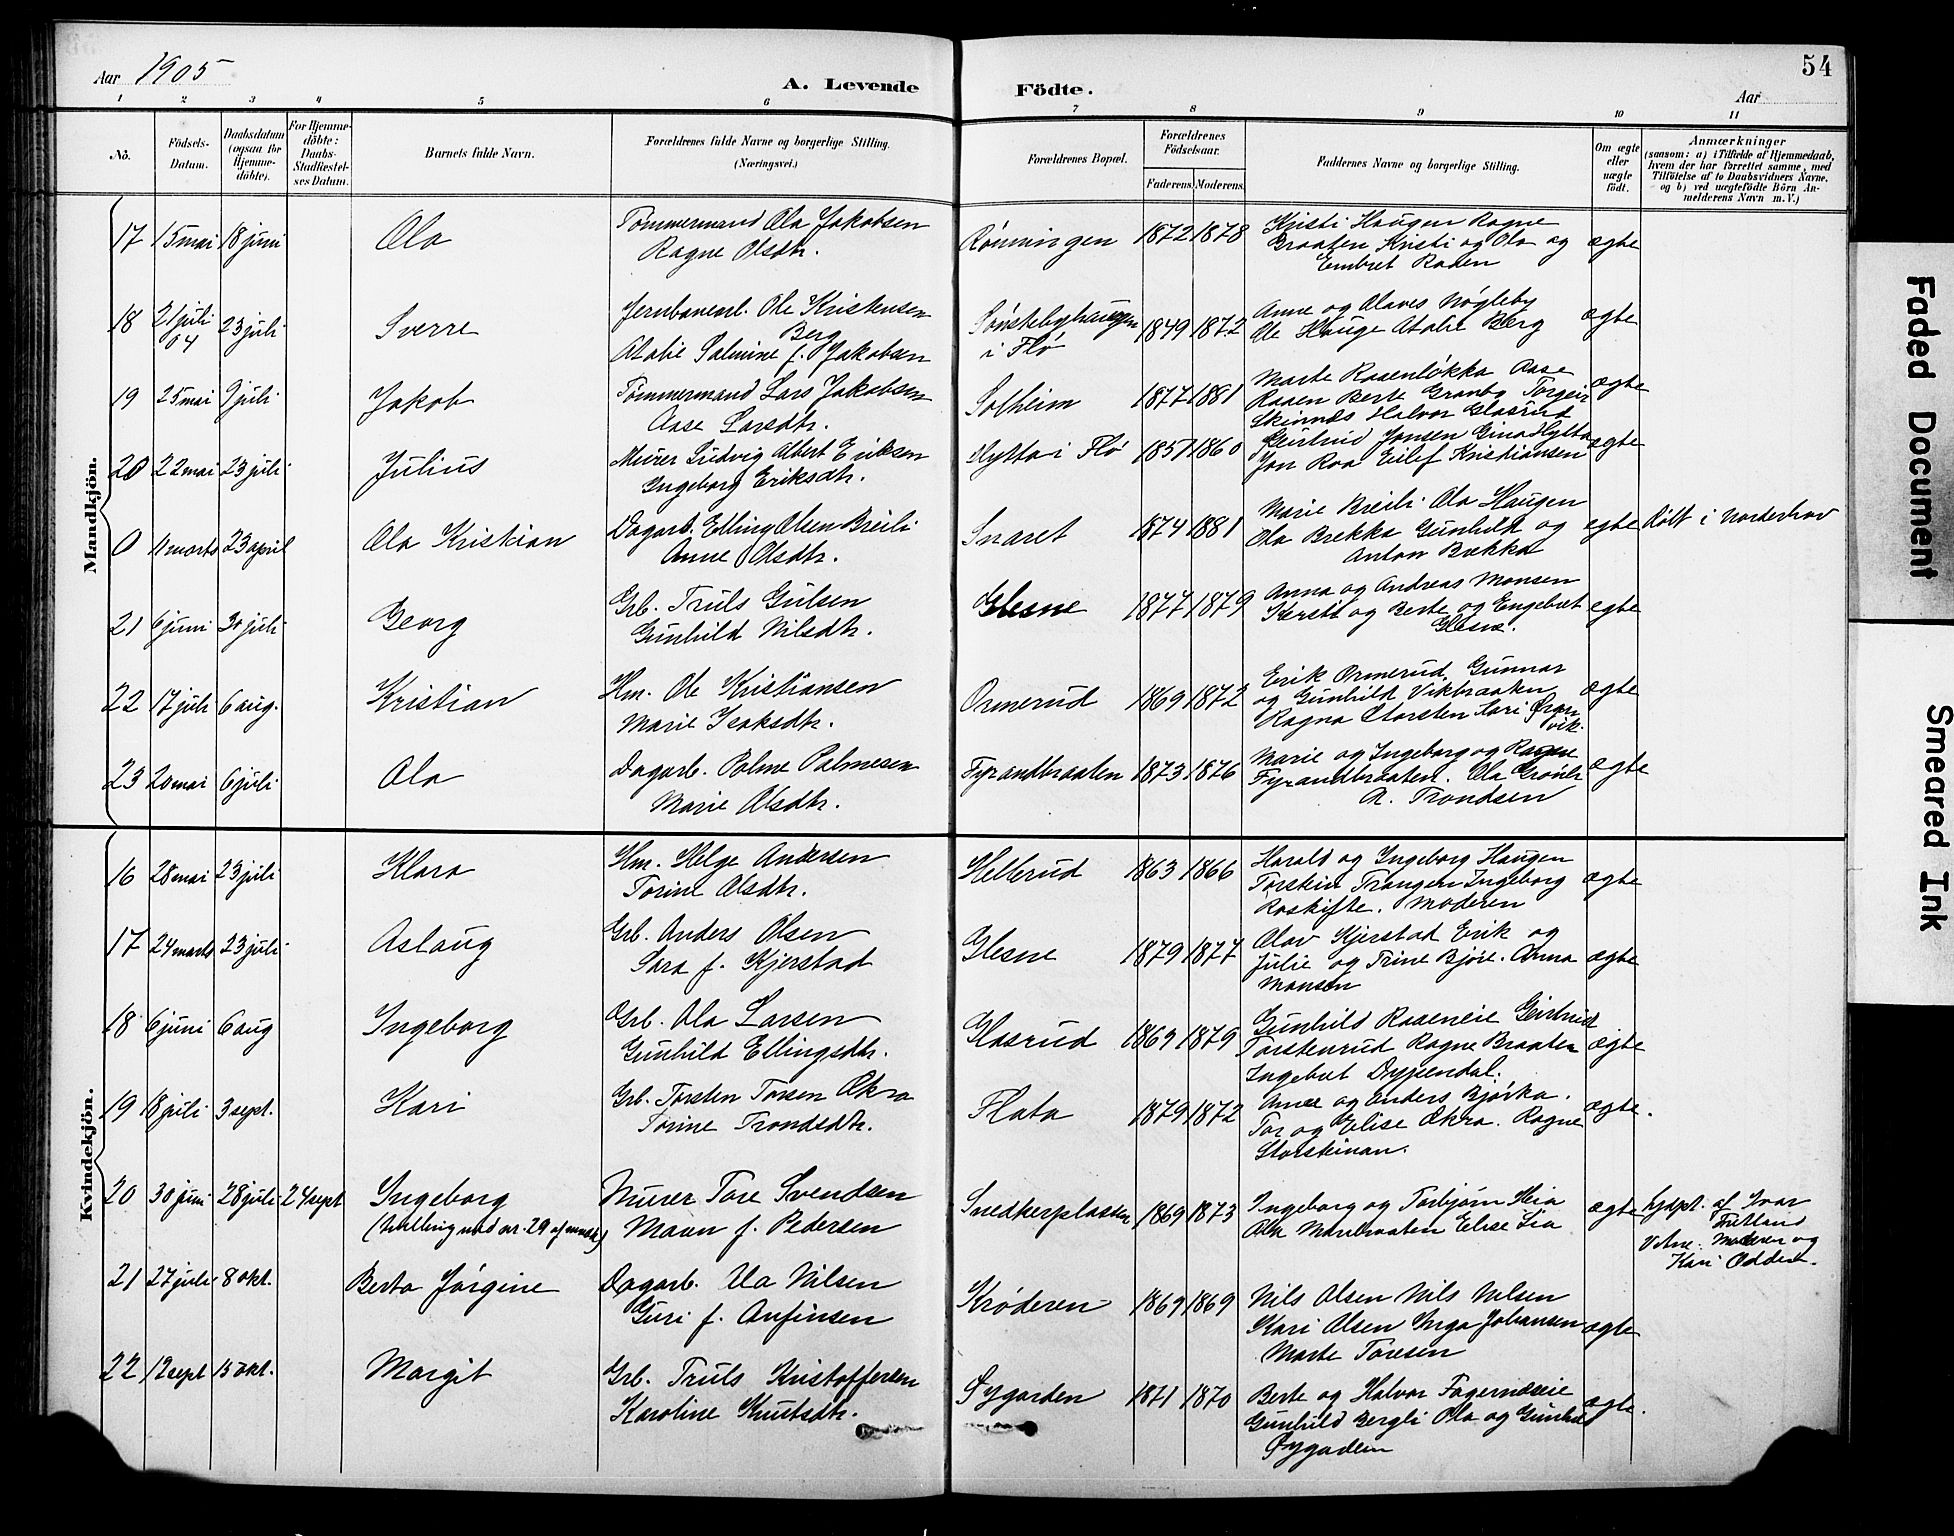 Aar 1905
A. Levende Födte.
54
Aar
1 2 3 4 5 6 7 8 9 10 11
No.
Födsels-Datum.
Daabsdatum (ogsaa for Hjemme-döbte).
For Hjemme-döbte: Daabs-Stadfæstel-ses Datum.
Barnets fulde Navn.
Forældrenes fulde Navne og borgerlige Stilling. (Næringsvei.)
Forældrenes Bopæl.
Forældrenes Födselsaar.
Faderens. Moderens.
Faddernes Navne og borgerlige Stilling.
Om ægte eller uægte födt.
Anmærkninger (saasom: a) i Tilfælde af Hjemmedaab, hvem der har forrettet samme, med Tilföielse af to Daabsvidners Navne. og b) ved uægtefödte Börn An-melderens Navn m. V.)
Mandkjön.
17 15 mai 18 juni Ola Tømmermand Ola Jakobsen Rønningen 1872 1878 Kristi Haugen Ragne ægte
Ragne Olsdtr. Graaten Kristi og Ola og
Embret Raaen
18 21 juli 04 23 juli Sverre Jernbanearb. Ole Kristensen Berg Sønstebyhaugen i Flø 1849 1872 Anne og Olaves Nøgleby ægte
Atalie Salmine f. Jakobsen Ole Hauge Atalie Berg
19 25 mai 9 juli Jakob Tømmermand Lars Jakobsen Solheim 1877 1881 Marte Raaenløkka Aase ægte
Aase Larsdtr. Raaen Berte Granbo Torgeir
Skinnes Halvor Glasrud
20 22 mai 23 juli Julius Murer Ludvig Albert Eriksen Hytta i Flø 1857 1860 Geirtrud Jonsen Gina Hytta ægte
Ingeborg Eriksdtr. Jon Roa Eilef Kristiansen
0 11 marts 23 april Ola Kristian Dagarb. Elling Olsen Breili Snaret 1874 1881 Marie Breili Ola Haugen ægte Døbt i Norderhov
Anne Olsdtr. Ola Brekka Gunhild og
Anton Brekka
21 6 juni 30 juli Georg Grb. Truls Gulsen Glesne 1877 1879 Anna og Andreas Monsen ægte
Gunhild Nilsdtr. Kersti og Berte og Engebret
Glesne.
22 17 juli 6 aug. Kristian Hm. Ole Kristiansen Ormerud 1869 1872 Erik Ormerud, Gunnar ægte
Marie Isaksdtr. og Gunhild Vikbraaten
Ragna Storsten Kari
23 20 mai 6 juli Ola Dagarb. Palme Palmesen Fyrandbraaten 1873 1876 Marie og Ingeborg og Ragne ægte
Marie Olsdtr. Fyrandbraaten. Ola Grønli
A. Trondsen
Kvindekjön.
16 28 mai 23 juli Klara Hm. Helge Andersen Hellerud 1863 1866 Harald og Ingeborg Haugen ægte
Torine Olsdtr. Torstein Trangen Ingeborg
Roskifte. Moderen
17 24 marts 23 juli Aslaug Grb. Anders Olsen Glesne 1879 1877 Olav Kjerstad Erik og ægte
Sara f. Kjerstad Julie og Trine Bjøre. Anna
Monsen
18 6 juni 6 aug Ingeborg Grb. Ola Larsen Glasrud 1869 1879 Gunhild Raaeneie Geirtrud ægte
Gunhild Ellingsdtr. Torstenrud Ragne Braaten
Ingebret Dypendal.
19 18 juli 3 sept. Kari Grb. Torsten Torsen Økra Flata 1879 1872 Anne og Anders Bjørka. ægte.
Torine Trondsdtr. Tor og Elise Økra. Ragne
Storsteinan.
20 30 juni 28 juli 24 sept Ingeborg Murer Tore Svendsen Snedkerplassen 1869 1873 Ingeborg og Torbjørn Hia ægte hjdpt. af Ivar
(tvilling med nr. 29 af mandk) Maren f. Pedersen Ola Marebraaten Elise Lia Frilland
Vitne: Moderen og
Kari Odden.
21 27 juli 8 okt. Berta Jørgine Dagarb. Ola Nilsen Krøderen 1869 1869 Nils Olsen Nils Nilsen ægte
Guri f. Anfinsen Kari Olsen Inga Johansen
Marte Toresen
22 12 sept 15 okt. Margit Grb. Truls Kristoffersen Øygarden 1871 1870 Berte og Halvor Fagernæseie ægte.
Karoline Knutsdtr. Gunhild Bergli Ola og Gunhild
Øygarden
Faded Document
Smeared Ink